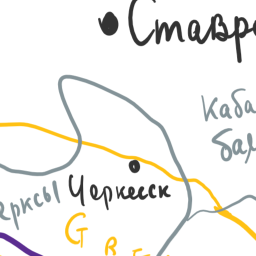 Ставро
Каба
бал
Черкесск
ерксы
G